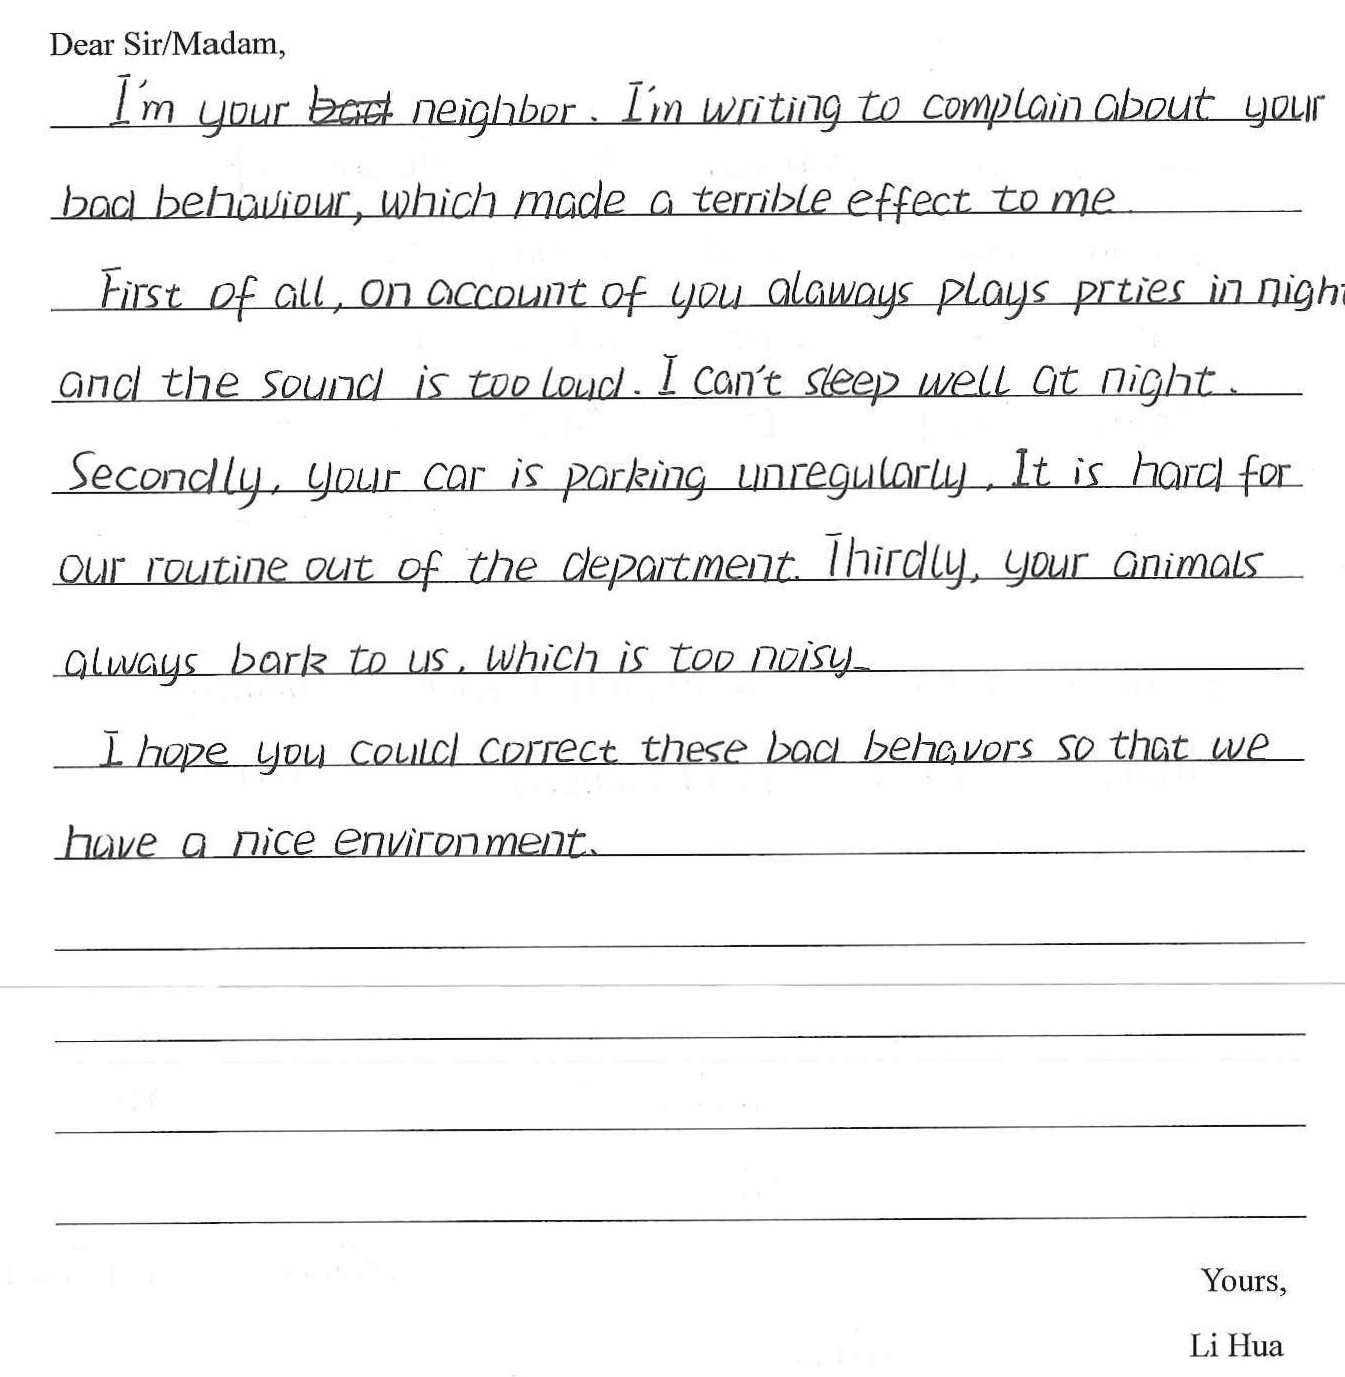 Dear Sir/Madam,
I'm your bad neighbor. I'm writing to complain about your
bad behaviour, which made a terrible effect to me
First of all, on account of you alaways plays prties in night
and the sound is too loud. I can't sleep well at night.
Secondly, your car is parking unregularly. It is hard for
our routine out of the department. Thirdly, your animals
always bark to us. Which is too noisy
I hope you could correct these bad behavors so that we
have a nice environment.
Yours,
Li Hua